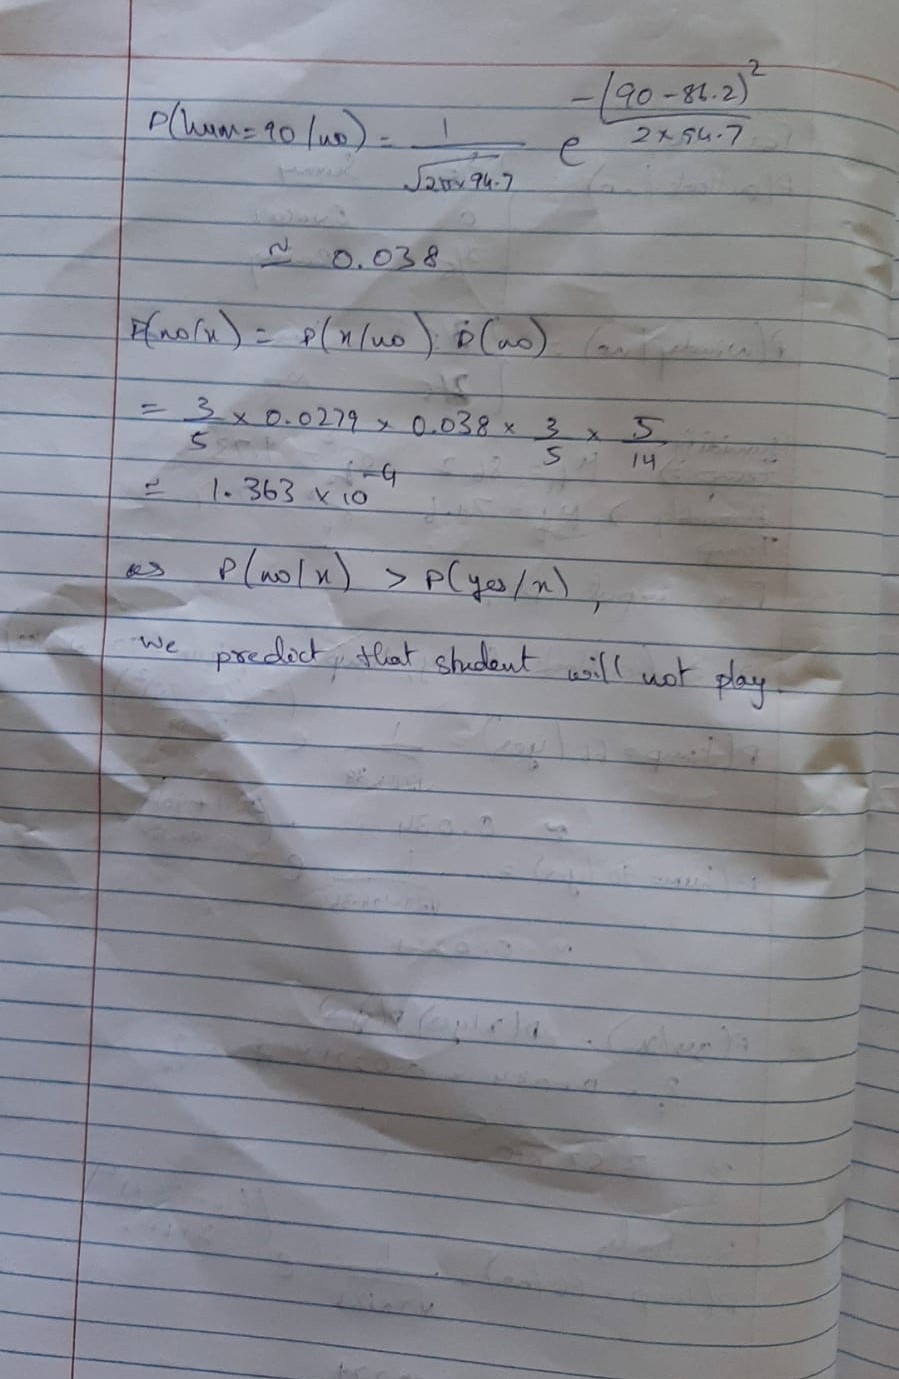 P(hum=90/no) = 1/√2π×94.7 e^-(90-86.2)²/2×94.7
≈ 0.038
P(no/x) = P(x/no) · P(no)
= 3/5 × 0.0279 × 0.038 × 3/5 × 5/14
= 1.363 × 10^-4
as P(no/x) > P(yes/x),
we predict, that student will not play.